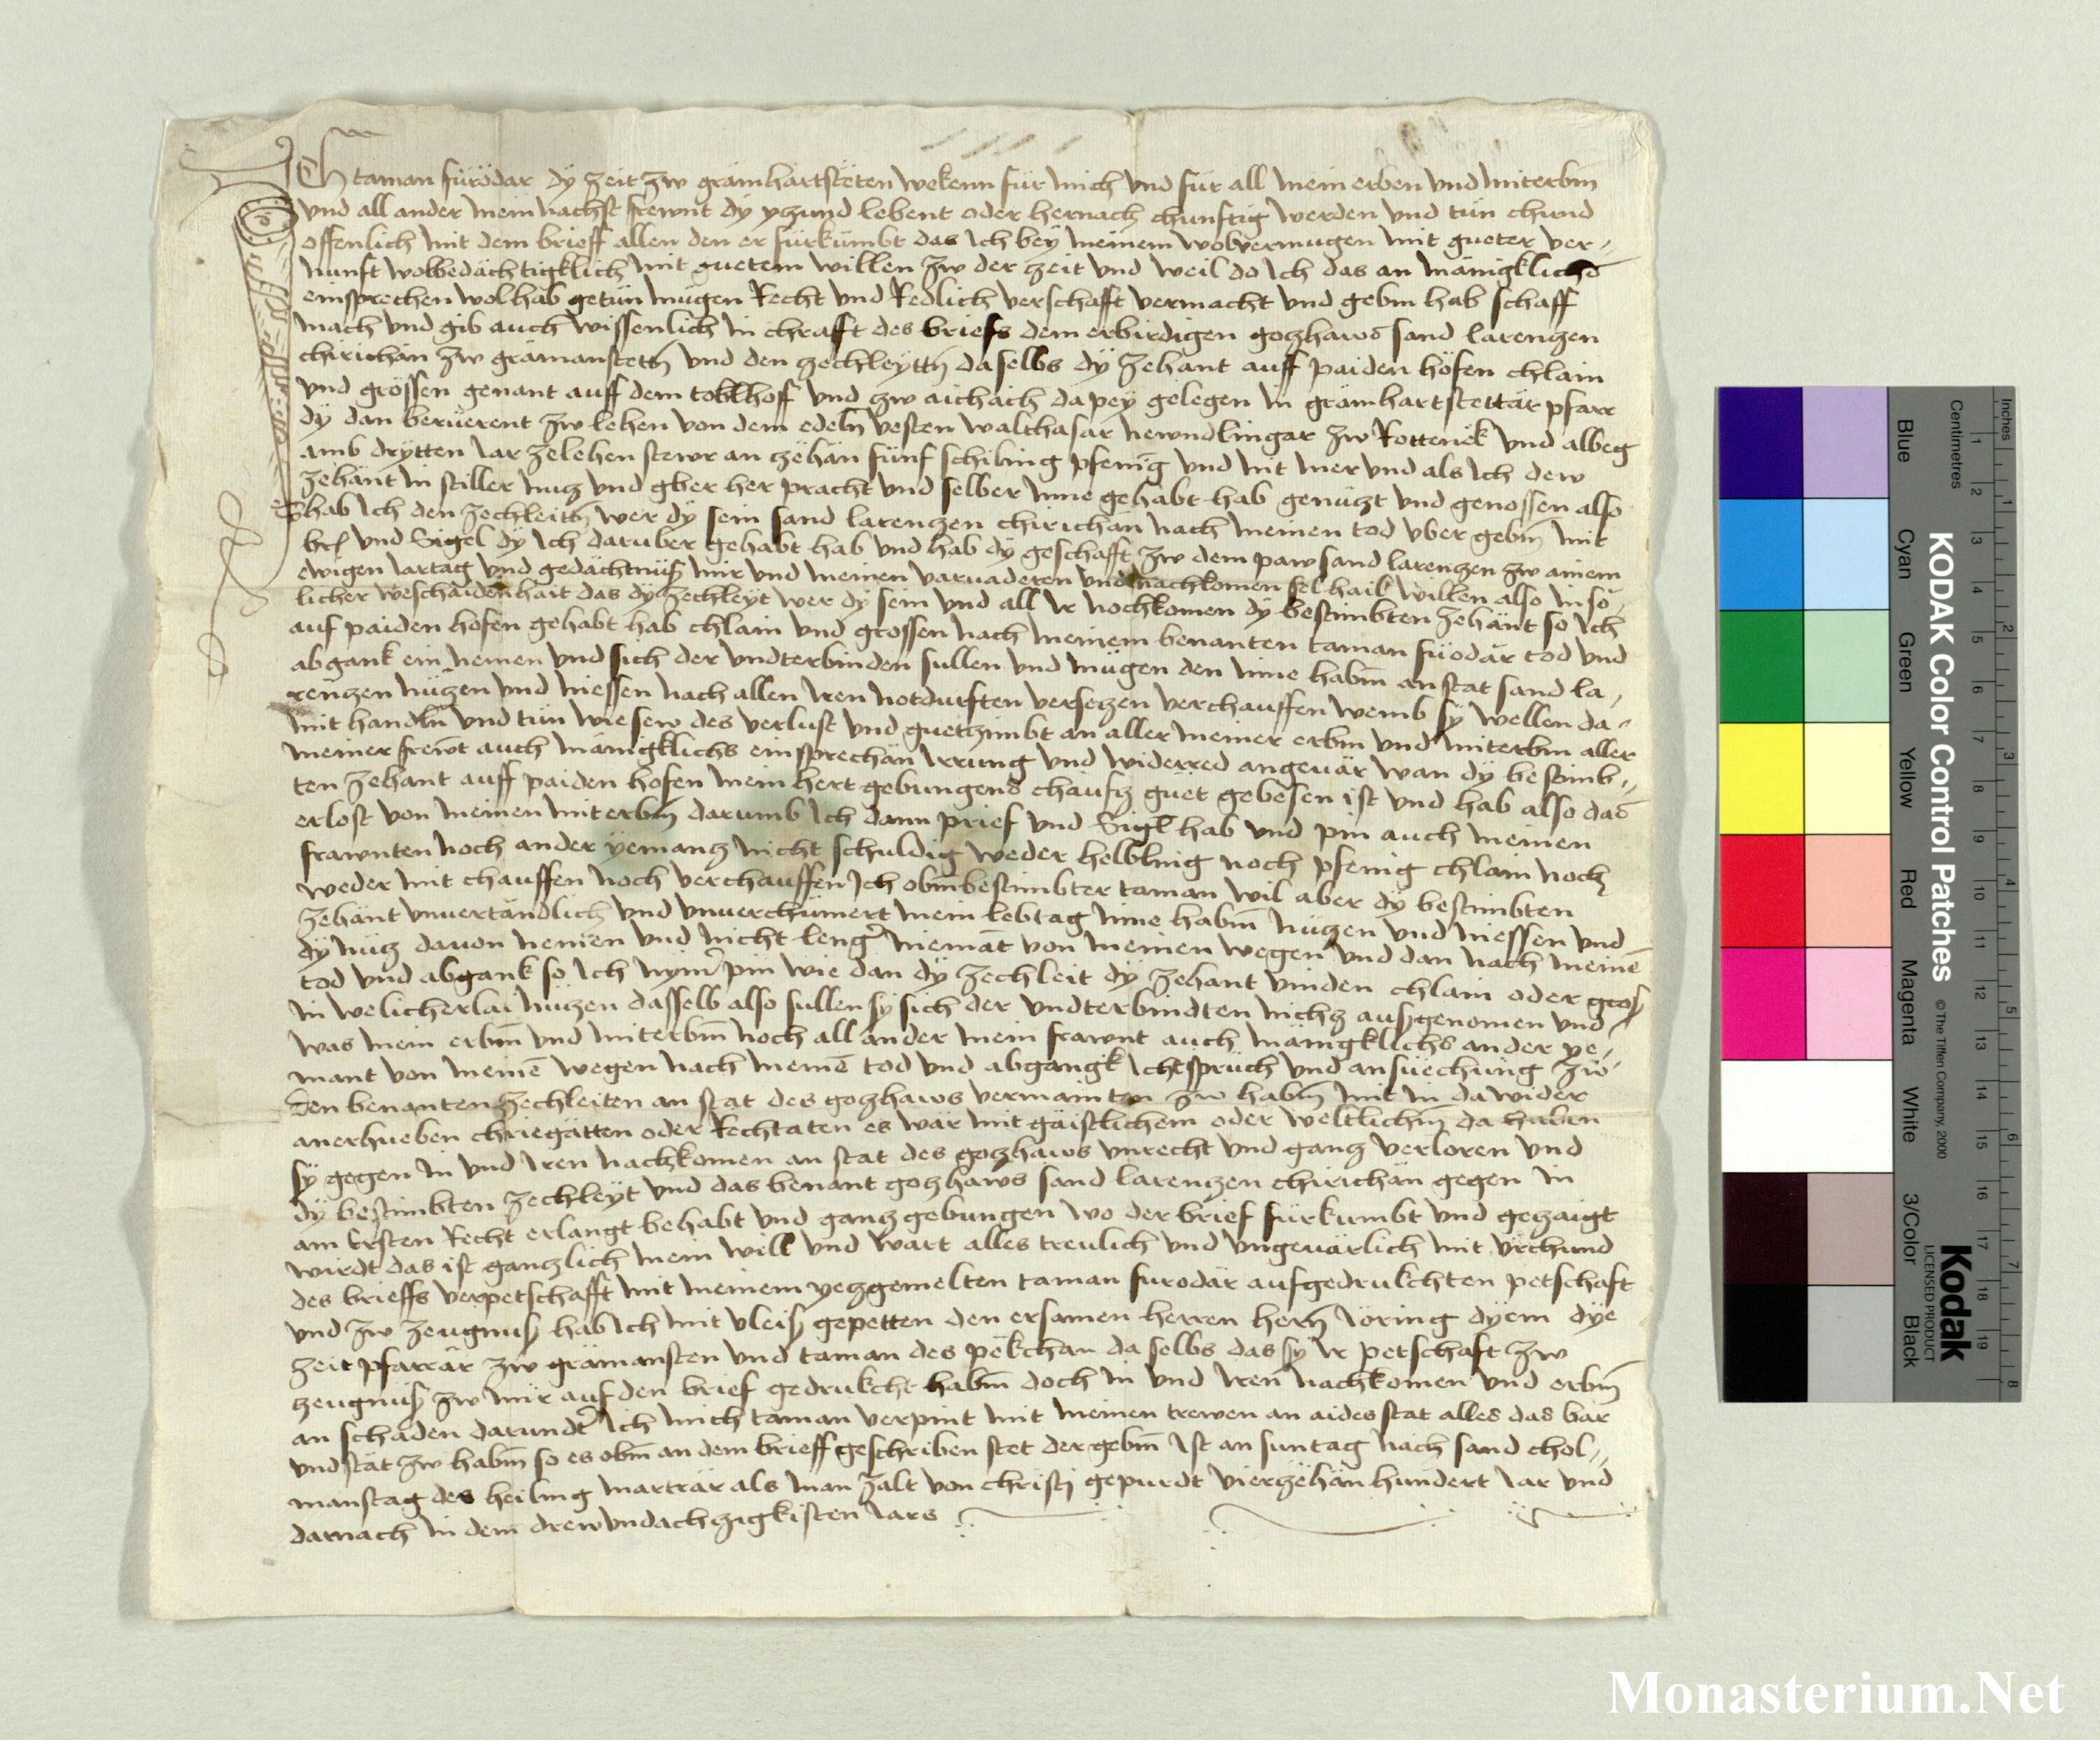 Ich taman fürödar dÿ zeit zw grämhartstëten wekenn für mich vnd für all mein erben vnd miterbm
vnd all ander mein nachst frewnt dÿ yczund lebent oder hernach chunftig werden vnd tün chund
offenlich mit dem brieff allen den er fürkümbt das ich beÿ meinem wolvermugen mit gueter ver-
nunft wolbedächtigklich mit guetem willen zw der zeit vnd weil do ich das an mänigklichs
einsprechen wol hab getün mügen Recht vnd Redlich verschafft vermacht vnd gebm hab schaff
mach vnd gib auch wissenlich in chrafft des briefs dem erbirdigen goczhaws sand larenczen
chirichän zw grämanstettn vnd den zechleyttn daselbs dÿ zehant auff paiden höfen chlain
vnd grössen genant auff dem toblhoff vnd zw aichach da peÿ gelegen in grämhartstettär pfarr
dÿ dan berüerent zw lehen von dem edeln vesten walthasar newndlingar zw Rottenek vnd albeg
amb drÿtten iar ze lehen stewr an zehän fünf schiling pfenig vnd nit mer vnd als ich dew
zehänt in stiller nucz vnd gber her pracht vnd selber inne gehabt hab genüczt vnd genossen also
hab ich den zechleittn wer dÿ sein sand larenczen chirichän nach meinen tod vber gebm mit
brf vnd Sigel dÿ ich daruber gehabt hab vnd hab dÿ geschafft zw dem paw sand larenczen zw ainem
ewigen iartag vnd gedächtnüß mir vnd meinen varuaderen vnd nachkomen sel hail willen also in sö-
licher weschaidenhait das dÿ zechleÿt wer dÿ sein vnd all ir nochkomen dÿ bestimbten zehänt so ich
auf paiden höfen gehabt hab chlain vnd grossen nach meinem benanten taman füodär tod vnd
abgank ein nemen vnd sich der vndterbinden sullen vnd mügen den inne habm an stat sand la-
renczen nüczen vnd niessen nach allen iren notdurften verseczen verchauffen wemb sÿ wellen da-
mit handln vnd tün wie sew des verlust vnd guetzimbt an aller meiner erbm vnd miterbm aller
meiner frewt auch mänigklichs einsprechän irrung vnd widerred angeuär wan dÿ bestimb-
ten zehant auff paiden hofen mein hert gebungens chaufcz guet gebesen ist vnd hab also das
erlost von meinen miterbm darumb ich dann prief vnd Sigl hab vnd pin auch meinen
frawnten noch ander yemancz nicht schuldig weder helbling noch pfenig chlain noch
weder mit chauffen noch verchauffen Ich obmbestimbter taman wil aber dÿ bestimbten
zehänt vnuertändlich vnd vnuerchümert mein lebtag inne habm nüczen vnd niessen vnd
dÿ nücz dauon nemen vnd nicht lenger niemät von meinen wegen vnd dan nach meinē
tod vnd abgank so ich nymer pin wie dan dÿ zechleit dÿ zehant vinden chlain oder groß
in welicherlai nuczen dasselb also sullen sÿ sich der vndterbindten nichcz außgenomen vnd
was mein erbm vnd miterbm noch all ander mein frawnt auch mänigklichs ander ye-
mant von meinē wegen nach meinē tod vnd abgangk ichtspruch vnd ansüechüng zw
den benanten zechleiten an stat des goczhaws vermainten zw habm mit in da wider
anerhueben chriegätten oder Rechtaten es wär mit gäistlichem oder weltlichm da habm
sÿ gegen in vnd iren nachkomen an stat des goczhaws vnrecht vnd gancz verloren vnd
dÿ bestimbten zechleÿt vnd das benant goczhaws sand larenczen chirichän gegen in
am Ersten Recht erlangt behabt vnd gancz gebungen wo der brief fürkumbt vnd geczaigt
wirdt das ist ganczlich mein will vnd wart alles treulich vnd vngeuärlich mit vrchund
des brieffs verpetschafft mit meinem yeczgemelten taman furodär aufgedrukchten petschaft
vnd zw zeugnuß hab ich mit vleiß gepetten den ersamen herren hern Iöring dÿem dÿe
zeit pfarrär zw grämansten vnd taman des pëkchan da selbs das sÿ ir petschaft zw
zeugnuß zw mir auf den brief gedrukcht habm doch in vnd iren nachkomen vnd erbm
an schaden darundter ich mich taman verpint mit meinen trewen an aides stat alles das bar
vnd stät zw habm so es obm an dem brieff geschriben stet der gebm ist an suntag nach sand chol-
manstag des heiling marträr als man zalt von christi gepurdt vierzëhän hundert iar vnd
darnach in dem drewvndachczigkisten iars
KODAK Color Control Patches
© The Tiffen Company, 2000
Kodak
LICENSED PRODUCT
Inches
Centimetres
Blue
Cyan
Green
Yellow
Red
Magenta
White
3/Color
Black
Monasterium.Net